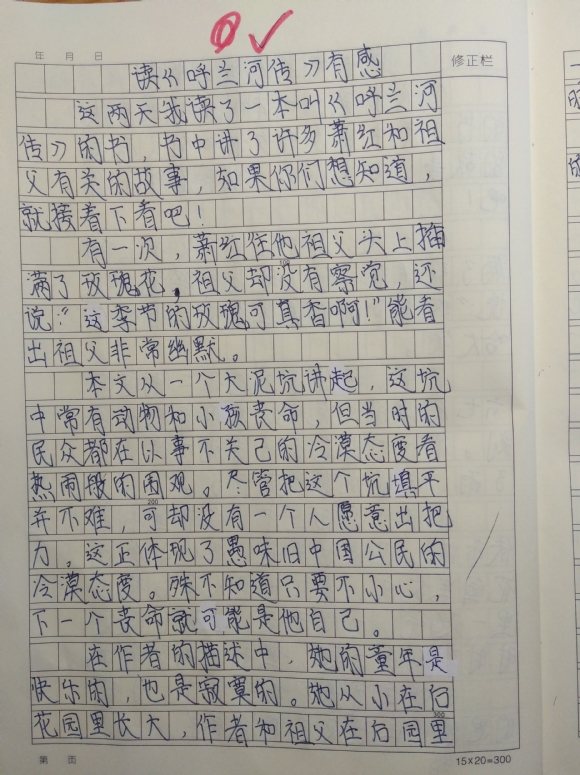 年 月 日
修正栏
读《呼兰河传》有感
这两天我读了一本叫《呼兰河
传》的书，书中讲了许多萧红和祖
父有关的故事，如果你们想知道，
就接着下看吧！
有一次，萧红往他祖父头上插
满了玫瑰花，祖父却没有察觉，还
说：“这季节的玫瑰可真香啊！”能看
出祖父非常幽默。
本文从一个大泥坑讲起，这坑
中常有动物和小孩丧命，但当时的
民众都在以事不关己的冷漠态度看
热闹般的围观。尽管把这个坑填平
200
并不难，可却没有一个人愿意出把
力，这正体现了愚昧旧中国公民的
冷漠态度。殊不知道只要不小心，
下一个丧命就可能是他自己。
在作者的描述中，她的童年是
快乐的，也是寂寞的。她从小在后
花园里长大，作者和祖父在后园里
300
第 页
15×20=300